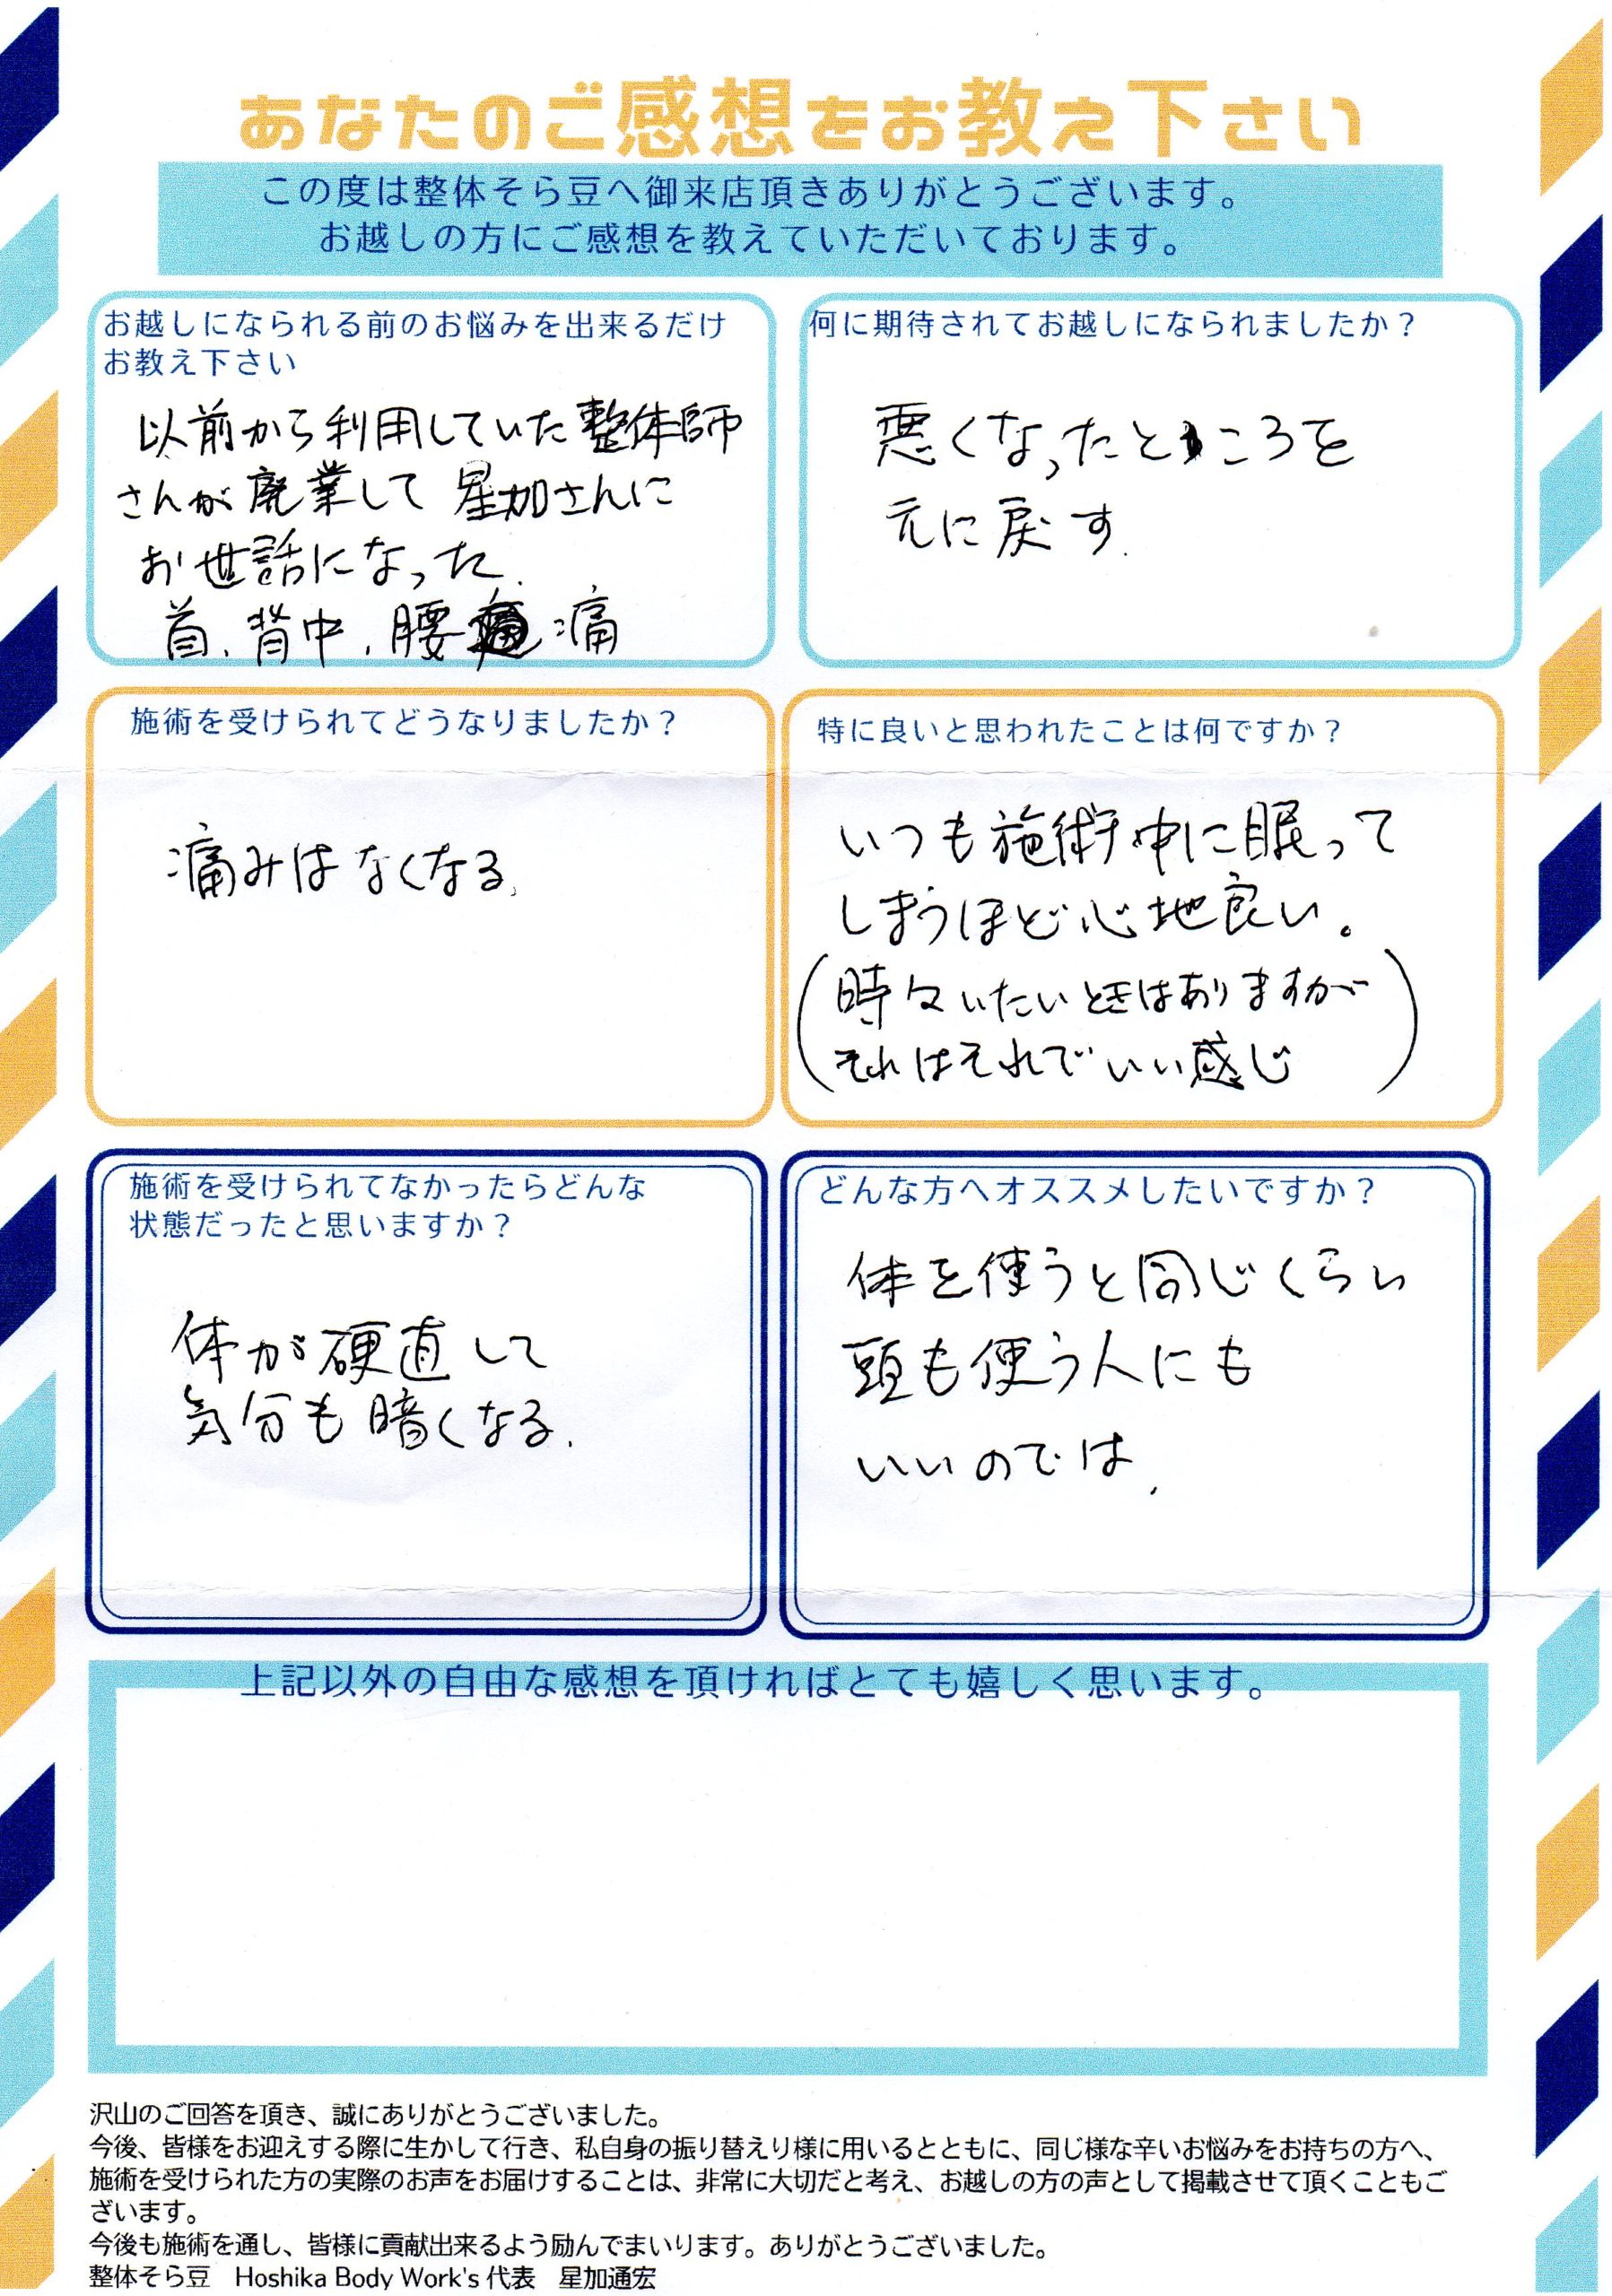 あなたのご感想をお教え下さい
この度は整体そら豆へ御来店頂きありがとうございます。
お越しの方にご感想を教えていただいております。
お越しになられる前のお悩みを出来るだけ
お教え下さい
以前から利用していた整体師
さんが廃業して星加さんに
お世話になった.
首、背中、腰痛
何に期待されてお越しになられましたか？
悪くなったところを
元に戻す.
施術を受けられてどうなりましたか？
痛みはなくなる.
特に良いと思われたことは何ですか？
いつも施術中に眠って
しまうほど心地良い。
(時々いたいときはありますが
それはそれでいい感じ)
施術を受けられてなかったらどんな
状態だったと思いますか？
体が硬直して
気分も暗くなる.
どんな方へオススメしたいですか？
体を使うと同じくらい
頭も使う人にも
いいのでは.
上記以外の自由な感想を頂ければとても嬉しく思います。
沢山のご回答を頂き、誠にありがとうございました。
今後、皆様をお迎えする際に生かして行き、私自身の振り替えり様に用いるとともに、同じ様な辛いお悩みをお持ちの方へ、
施術を受けられた方の実際のお声をお届けすることは、非常に大切だと考え、お越しの方の声として掲載させて頂くこともご
ざいます。
今後も施術を通し、皆様に貢献出来るよう励んでまいります。ありがとうございました。
整体そら豆　Hoshika Body Work's 代表　星加通宏